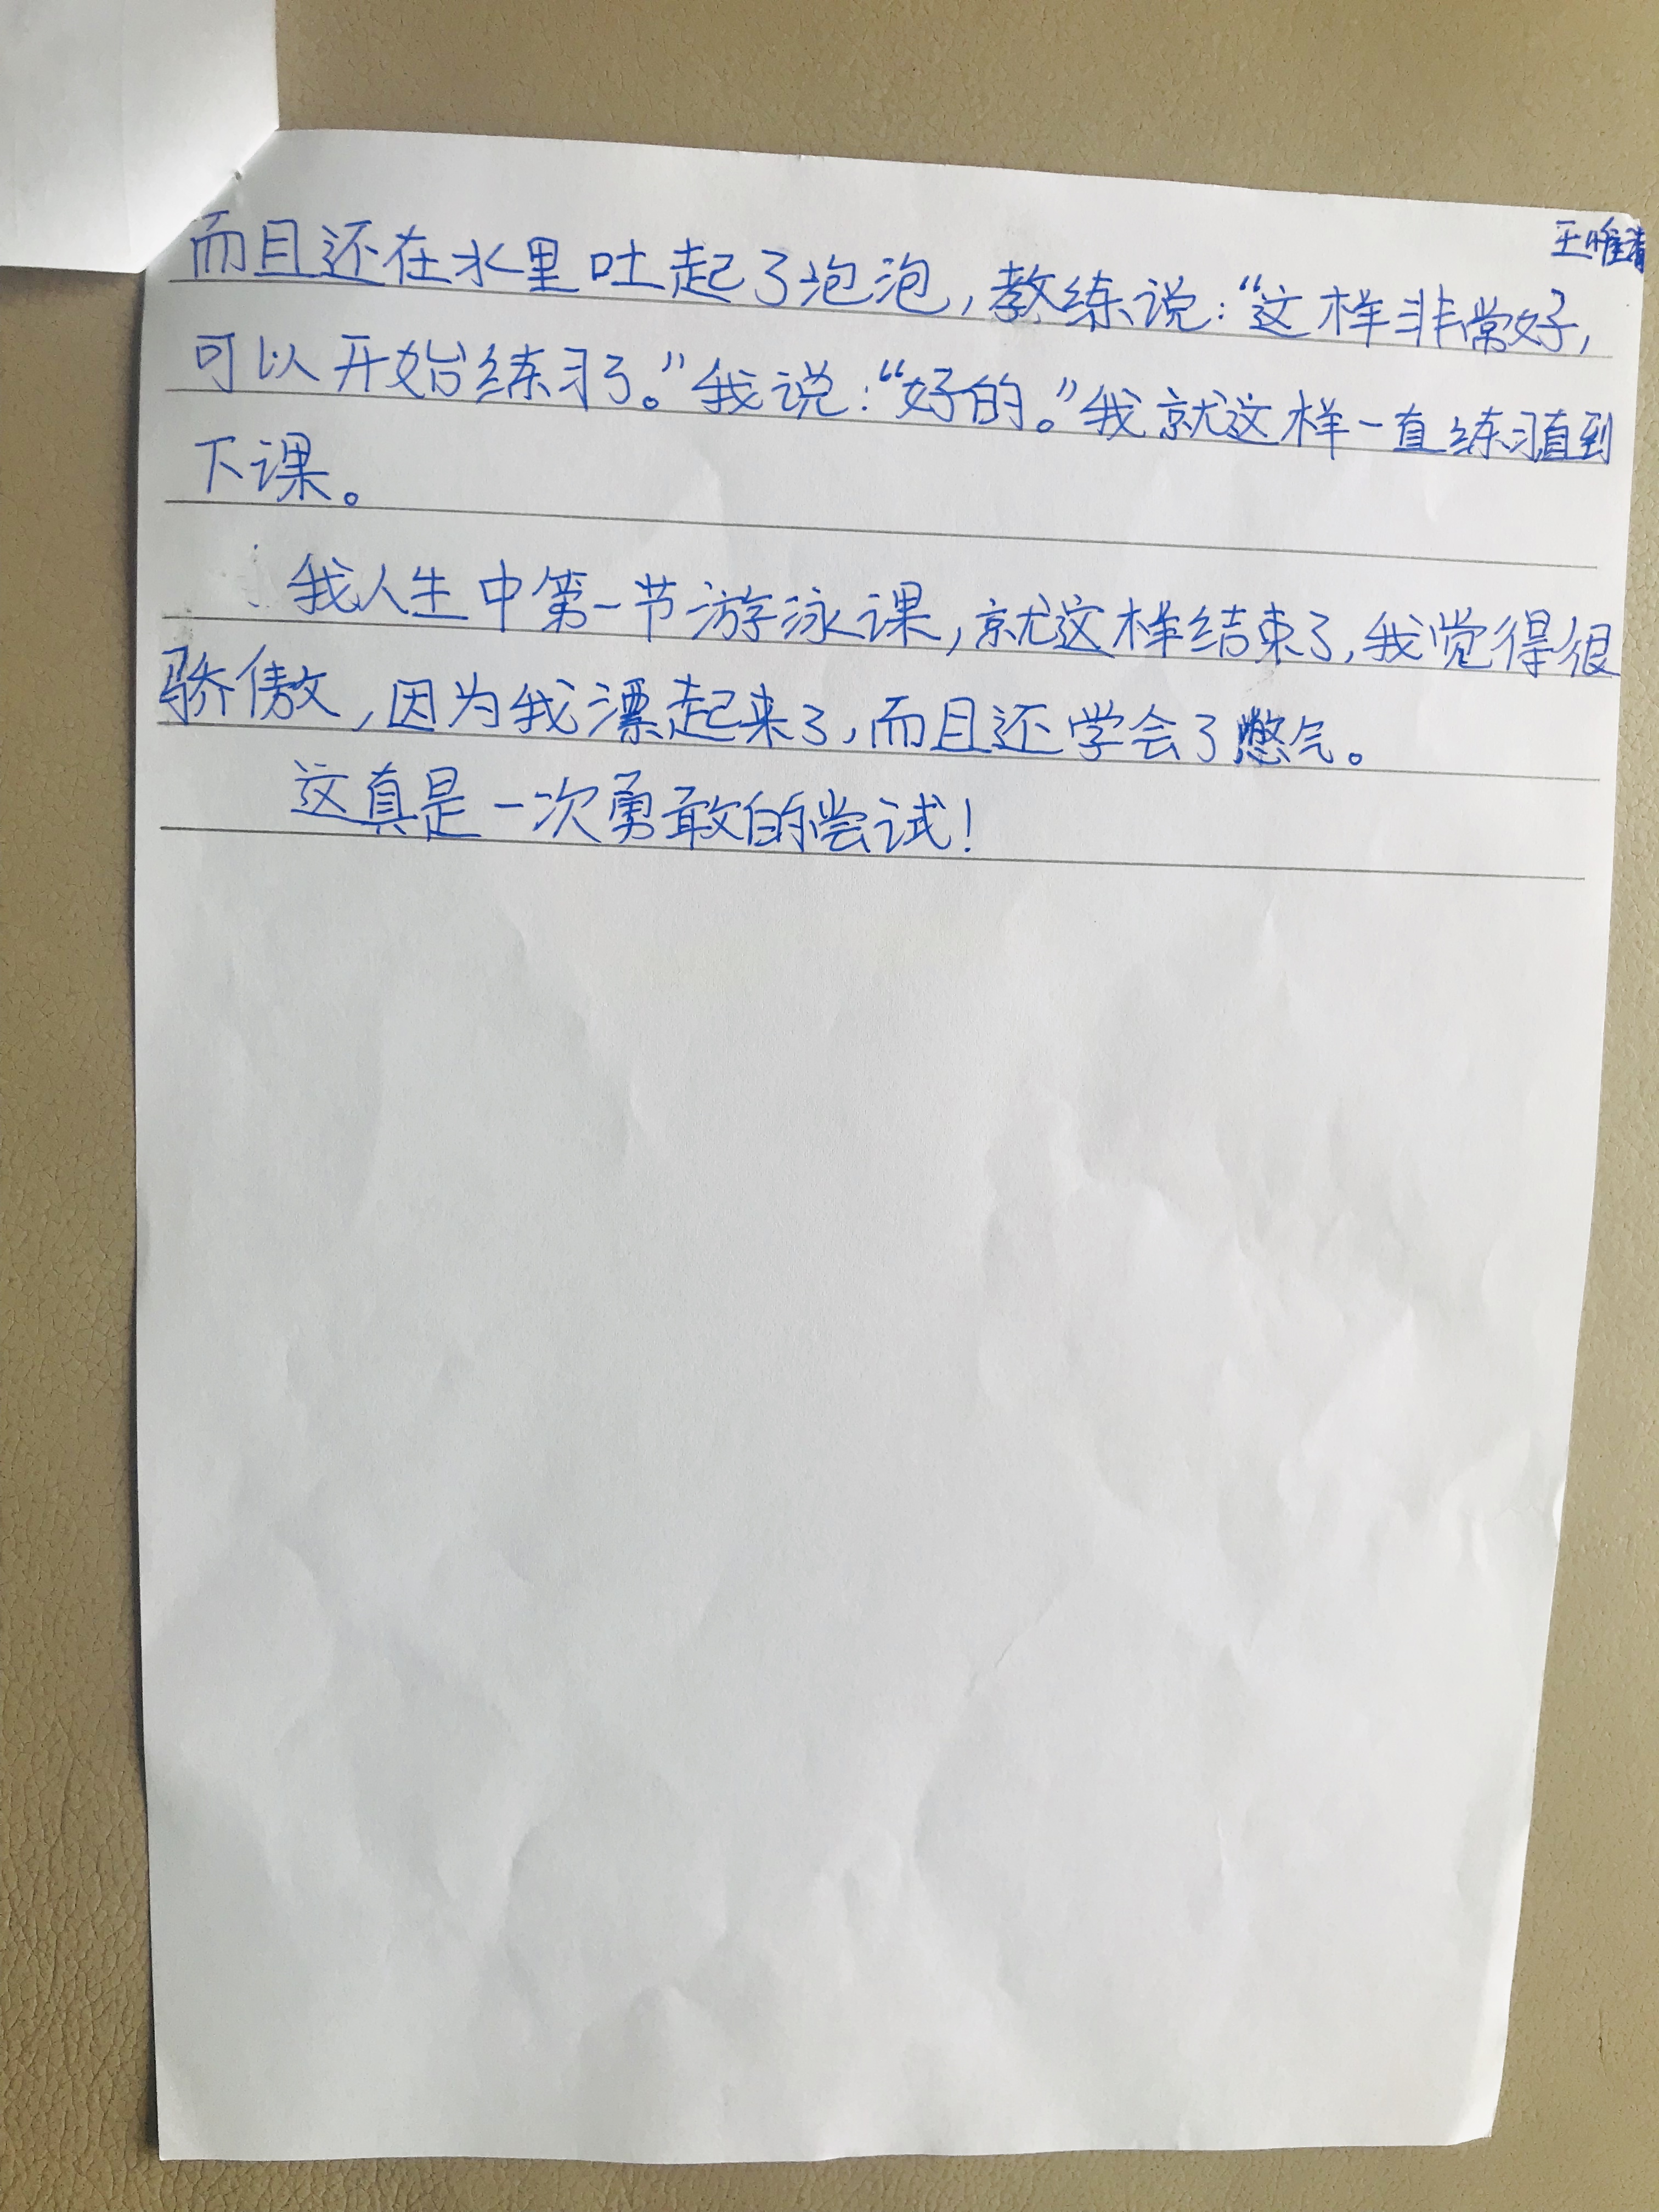 王唯清
而且还在水里吐起了泡泡，教练说：“这样非常好，
可以开始练习了。”我说：“好的。”我就这样一直练习直到
下课。
我人生中第一节游泳课，就这样结束了，我觉得很
骄傲，因为我漂起来了，而且还学会了憋气。
这真是一次勇敢的尝试！